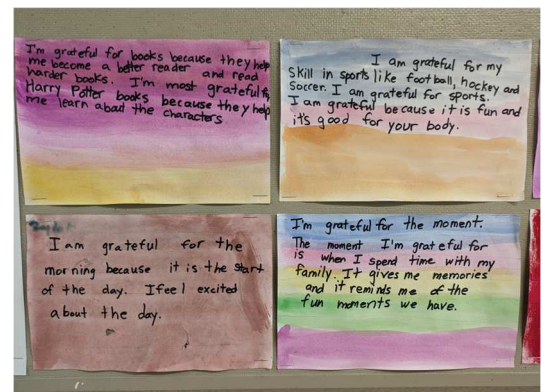 I'm grateful for books because they help
me become a better reader and read
harder books. I'm most grateful for
Harry Potter books because they help
me learn about the characters
I am grateful for my
skill in sports like football, hockey and
Soccer. I am grateful for sports.
I am grateful because it is fun and
it's good for your body.
I am grateful for the
morning because it is the start
of the day. I feel excited
about the day.
I'm grateful for the moment.
The moment I'm grateful for
is when I spend time with my
family. It gives me memories
and it reminds me of the
fun moments we have.